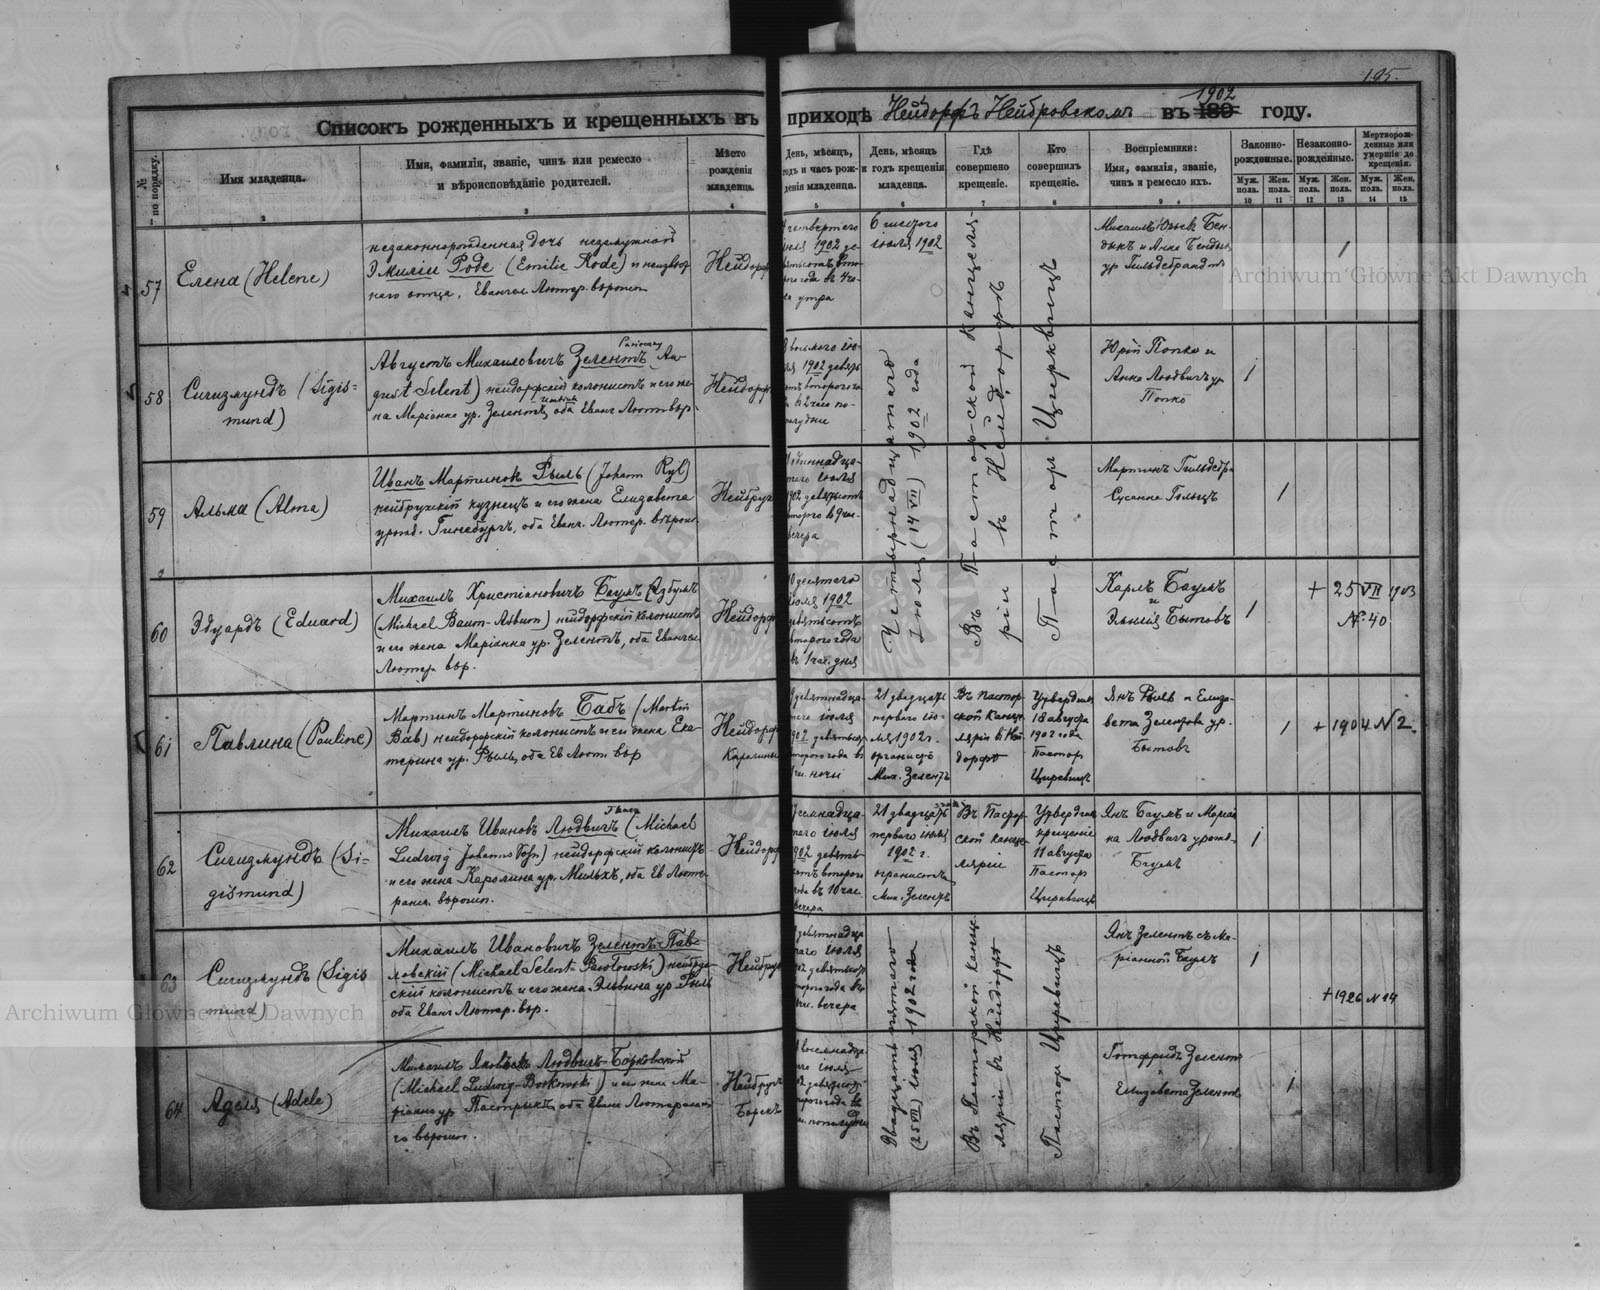 195.
Списокъ рожденныхъ и крещенныхъ въ приходѣ Нейдорфъ Нейбровскомъ въ 189 1902 году.
№ по порядку.
Имя младенца.
Имя, фамилія, званіе, чинъ или ремесло
и вѣроисповѣданіе родителей.
Мѣсто
рожденія
младенца.
День, мѣсяцъ,
годъ и часъ рож-
денія младенца.
День, мѣсяцъ
и годъ крещенія
младенца.
Гдѣ
совершено
крещеніе.
Кто
совершилъ
крещеніе.
Воспріемники:
Имя, фамилія, званіе,
чинъ и ремесло ихъ.
Законно-
рожденные.
Незаконно-
рожденные.
Мертворож-
денные или
умершіе до
крещенія.
Муж. пола.
Жен. пола.
Муж. пола.
Жен. пола.
Муж. пола.
Жен. пола.
1 2 3 4 5 6 7 8 9 10 11 12 13 14 15
57
Елена (Helene)
незаконнорожденная дочь незамужной
Эмиліи Роде (Emilie Rode) и неизвѣст
наго отца, Евангел Лютер. вѣроисп
Нейдорфъ
четвертаго
іюля 1902 де-
вятьсотъ вто-
рого года въ 4 ча-
са утра
6 шестого
іюля 1902
Михаилъ Бен-
дыкъ и Анна Бендыкъ
ур Гильдебрандтъ
1
58
Сигизмундъ (Sigis-
mund)
Августъ Михаиловичъ Зелентъ (Au-
gust Selent) нейдорфскій колонистъ и его же-
на Маріанна ур. Зелентъ, оба Еванг Лют вѣр.
Нейдорфъ
восьмого ію-
ля 1902 девять
сотъ второго го
да въ 2 часа по-
полудни
Юрій Попко и
Анна Людвигъ ур
Попко
1
59
Альма (Alma)
Иванъ Мартиновъ Рыль (Johann Ryl)
нейбрускій кузнецъ и его жена Елизавета
урожд. Гинебургъ, оба Еванг. Лютер. вѣроисп.
Нейбруг
одиннадца-
таго іюля
1902 девятьсотъ
второго въ 9 час.
вечера
Мартинъ Гильдебра
Сусанна Гольцъ
1
Четырнадцатаго
іюля (14 VII) 1902 года
Въ Пасторской Канцеля
ріи въ Нейдорфѣ
Пасторъ Цирквицъ
60
Эдуардъ (Eduard)
Михаилъ Христіановичъ Баумъ (Азбумъ
(Michael Baum-Asbum) нейдорфскій колонистъ
и его жена Маріанна ур. Зелентъ, оба Евангел
Лютер вѣр.
Нейдорфъ
десятаго
іюля 1902
девятьсотъ
второго года
въ 1 час. дня
Карлъ Баумъ
и
Эмилія Бытовъ
1
+ 25 VII 1903
№ 40
61
Павлина (Pauline)
Мартинъ Мартиновъ Бабъ (Martin
Bab) нейдорфскій колонистъ и его жена Ека
терина ур. Рыль, оба Ев Лют вѣр
Нейдорфъ
девятнадца-
таго іюля
1902 девятьсотъ
второго года въ
час. ночи
21 двадцать
перваго ію-
ля 1902 г.
органистъ
Мих. Зелентъ
Въ пастор-
ской канце-
ляріи въ Ней
дорфѣ
Утвердилъ
18 августа
1902 года
Пасторъ
Цирквицъ
Янъ Рыль и Елиза-
вета Зелентова ур.
Бытовъ
1
+ 1904 № 2.
62
Сигизмундъ (Si-
gismund)
Михаилъ Ивановъ Людвигъ (Michael
Ludwig Johanns Sohn) нейдорфскій колонистъ
и его жена Каролина ур. Мильхъ, оба Ев Люте-
ранск. вѣроисп.
Нейдорфъ
семнадца-
таго іюля
1902 девять-
сотъ второго
года въ 10 час.
вечера
21 двадцать
перваго іюля
1902 г.
органистъ
Мих. Зелентъ
Въ Пастор-
ской канце-
ляріи
Утвердилъ
крещеніе
18 августа
Пасторъ
Цирквицъ
Янъ Баумъ и Маріан
на Людвигъ урожд-
Баумъ
1
63
Сигизмундъ (Sigis
mund)
Михаилъ Ивановичъ Зелентъ-Пав-
ловскій (Michael Selent-Pawlowski) нейбру-
скій колонистъ и его жена Эльвина ур Рыль
оба Еванг Лютер. вѣр.
Нейбруг
девятнадца
таго іюля
1902 девятьсот
второго года въ
час. вечера
Янъ Зелентъ съ Ма-
ріанной Баумъ
1
+ 1926 № 14
64
Аделя (Adele)
Михаилъ Яковъ Людвигъ-Борковскій
(Michael Ludwig-Borkowski) и его жена Ма-
ріанна ур Пастрикъ, оба Еванг Лютеранска
го вѣроисп.
Нейбругъ
Борекъ
восемнадца
таго іюля
девятьсот
второго года въ
пополудни
Двадцать пятаго
(25 VII) іюля 1902 года
Въ Пасторской канце
ляріи въ Нейдорфѣ
Пасторъ Цирквицъ
Готфридъ Зелентъ
Елизавета Зелентъ
1
Archiwum Główne Akt Dawnych
Archiwum Główne Akt Dawnych